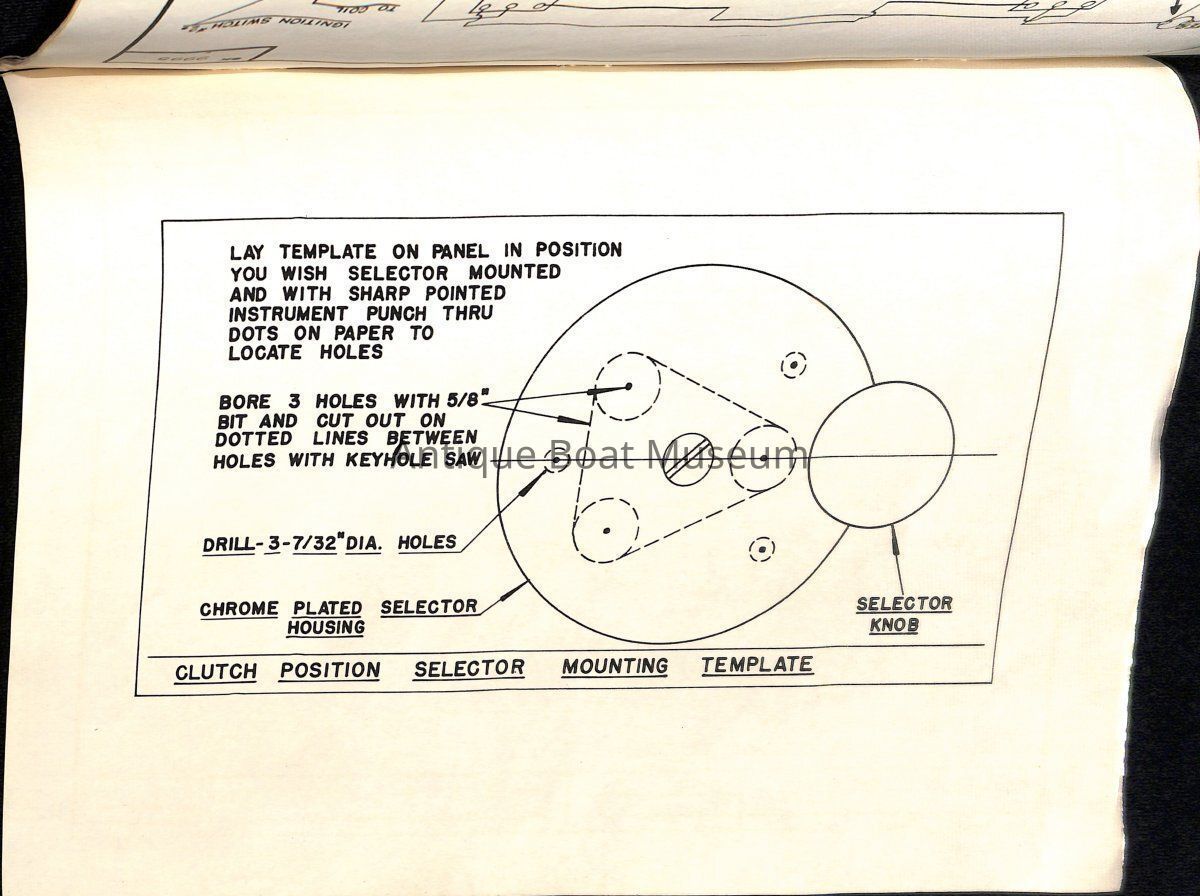 IGNITION SWITCH
TO COIL
LAY TEMPLATE ON PANEL IN POSITION
YOU WISH SELECTOR MOUNTED
AND WITH SHARP POINTED
INSTRUMENT PUNCH THRU
DOTS ON PAPER TO
LOCATE HOLES
BORE 3 HOLES WITH 5/8"
BIT AND CUT OUT ON
DOTTED LINES BETWEEN
HOLES WITH KEYHOLE SAW
Antique Boat Museum
DRILL-3-7/32"DIA. HOLES
CHROME PLATED SELECTOR
HOUSING
SELECTOR
KNOB
CLUTCH POSITION SELECTOR MOUNTING TEMPLATE